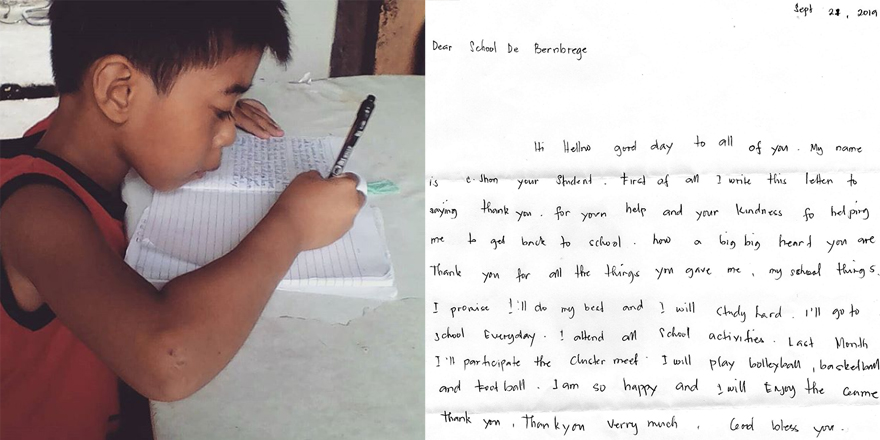 Sept 21, 2019
Dear School De Bernbrege
Hi Hellno good day to all of you. My name
is c-Jhon your student. First of all I write this letter to
saying thank you. for your help and your kindness fo helping
me to get back to school. how a big big heart you are
Thank you for all the things you gave me, my school things.
I promice I'll do my best and I will study hard. I'll go to
school Everyday. I attend all school activities. Last Month
I'll participate the Cluster meet. I will play bolleyball, basketball
and football. I am so happy and I will Enjoy the Game
thank you, Thankyou verry much, God bless you.